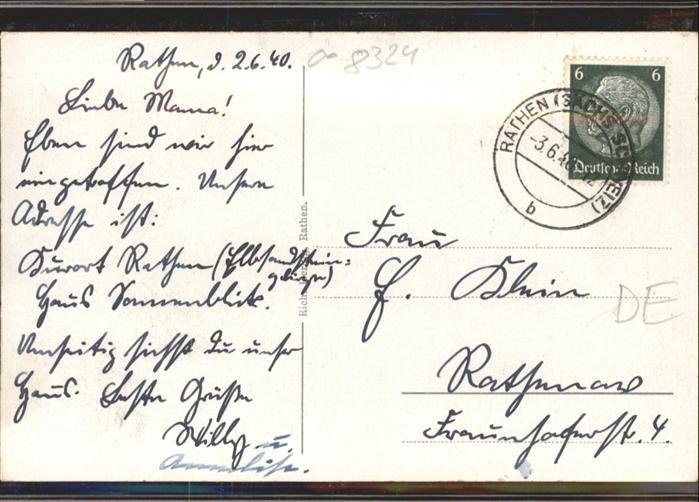 Rathen, d. 2.6.40.
Liebe Mama!
Eben sind wir hier
eingetroffen. Unsere
Adresse ist:
Kurort Rathen (Elbsandstein-
gebirge)
Haus Sonnenblick.
Umseitig siehst du unser
Haus. Beste Grüße
Willy u.
Anneliese.
8324
6 6
Deutsches Reich
RATHEN (SÄCHS. SCHWEIZ)
-3.6.40
b
Rathen.
Frau
E. Klein
DE
Rathenow
Fraunhoferstr. 4.